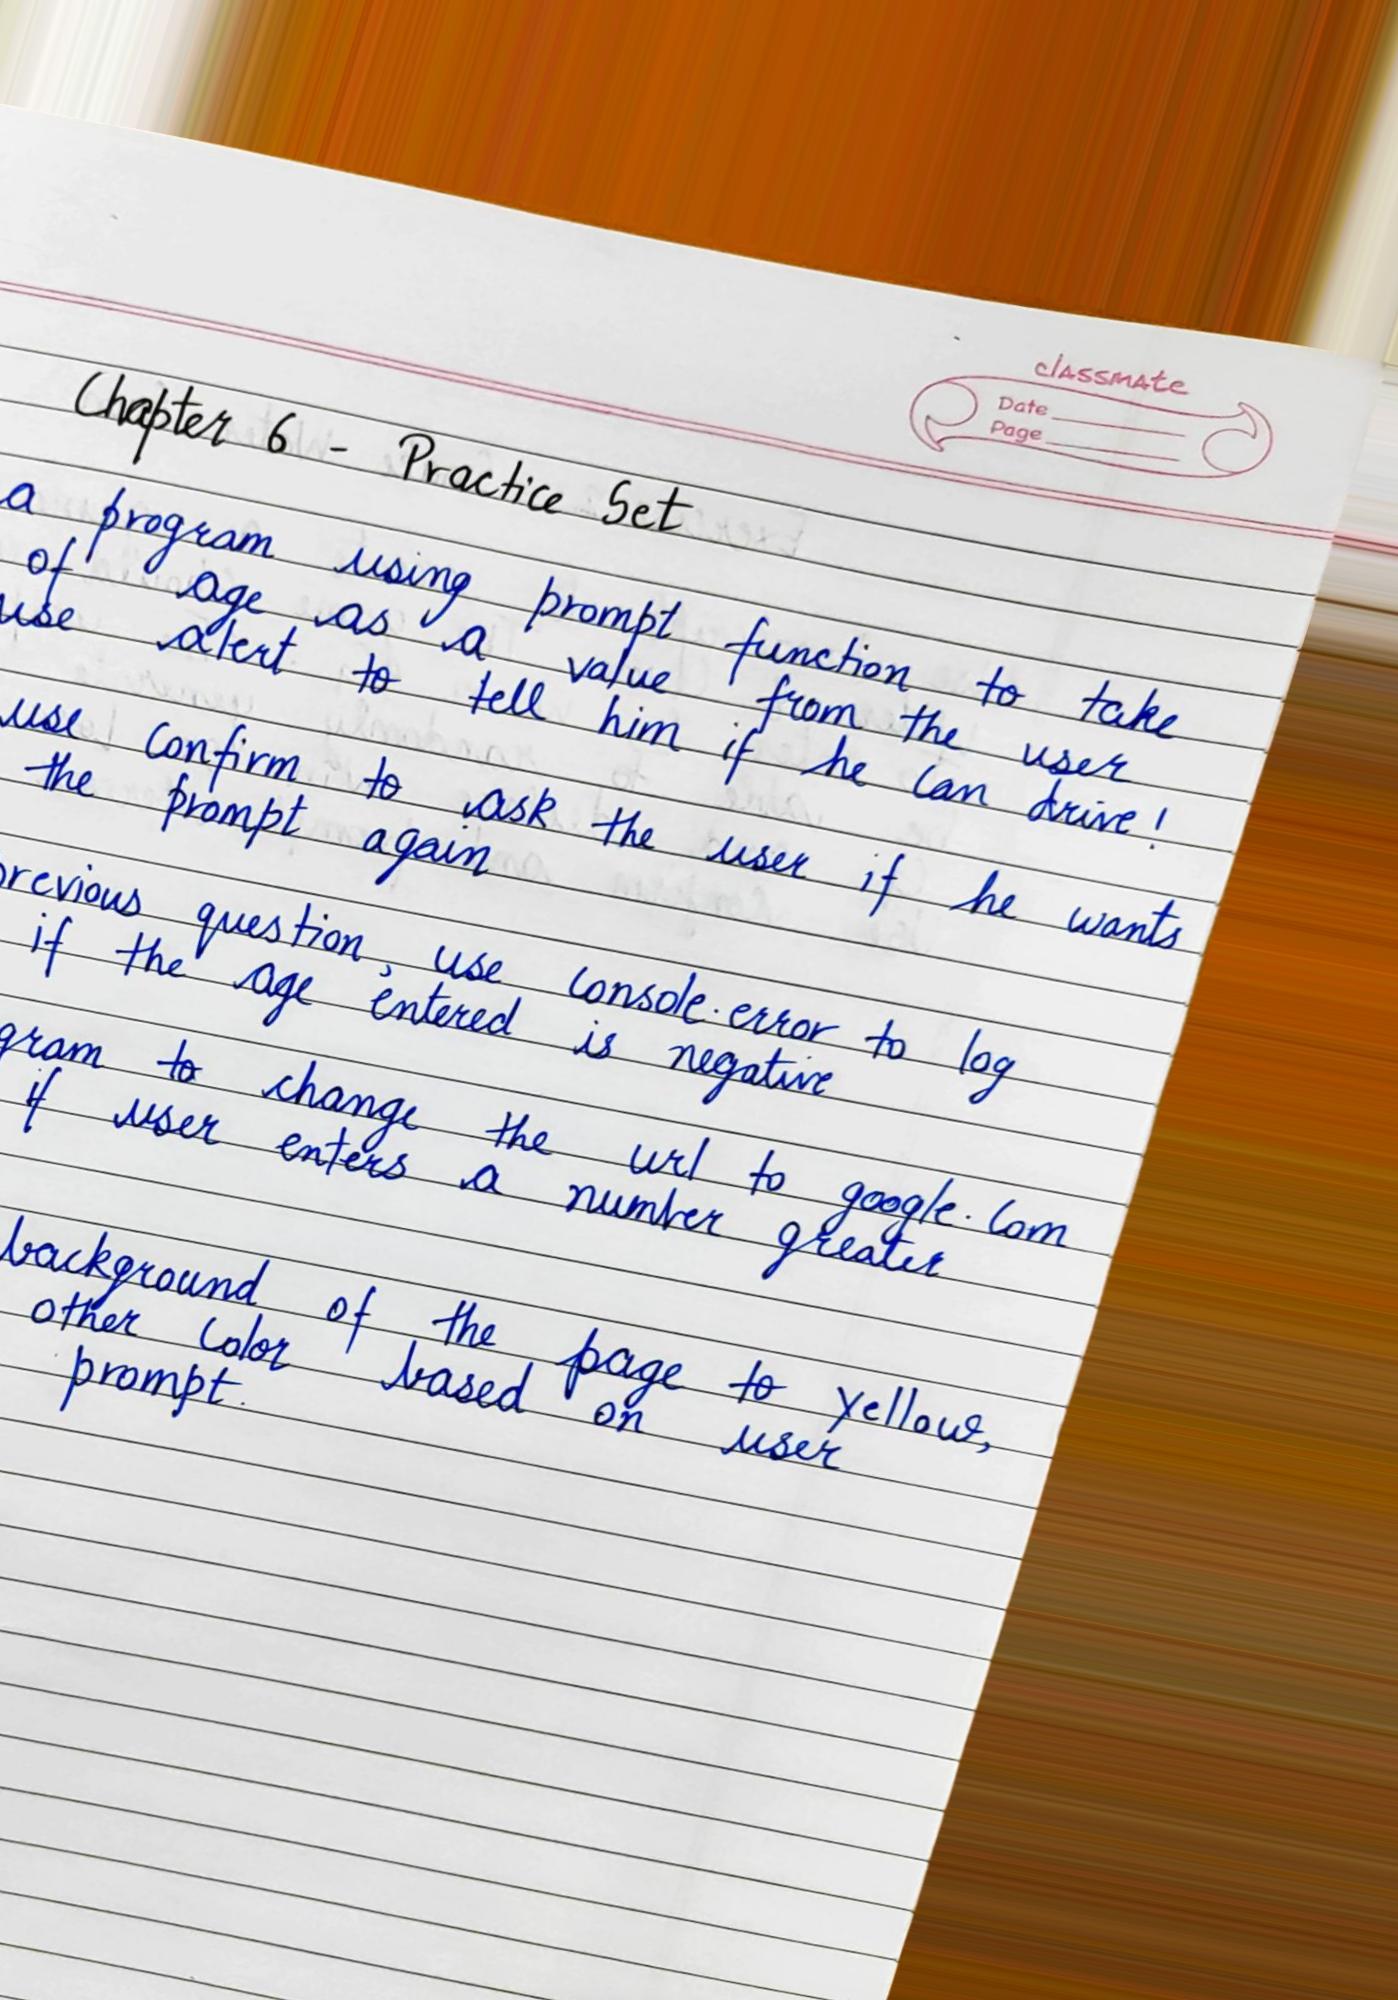 classmate
Date
Page
Chapter 6 - Practice Set
a program using prompt function to take
of age as a value from the user
use alert to tell him if he can drive!
use confirm to ask the user if he wants
the prompt again
previous question, use console.error to log
if the age entered is negative
gram to change the url to google.com
if user enters a number greater
background of the page to yellow,
other color based on user
prompt.